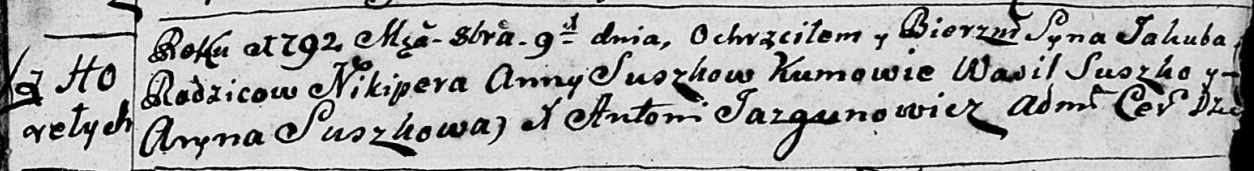 z Ho
rełych
Roku 1792 Mca 8bra 9 dnia, Ochrzciłem y Bierzm Syna Jakuba,
Rodzicow Nikipera Anny Suszkow Kumowie Wasil Suszko y
Aryna Suszkowa, X Antoni Jazgunowicz Adm Cer